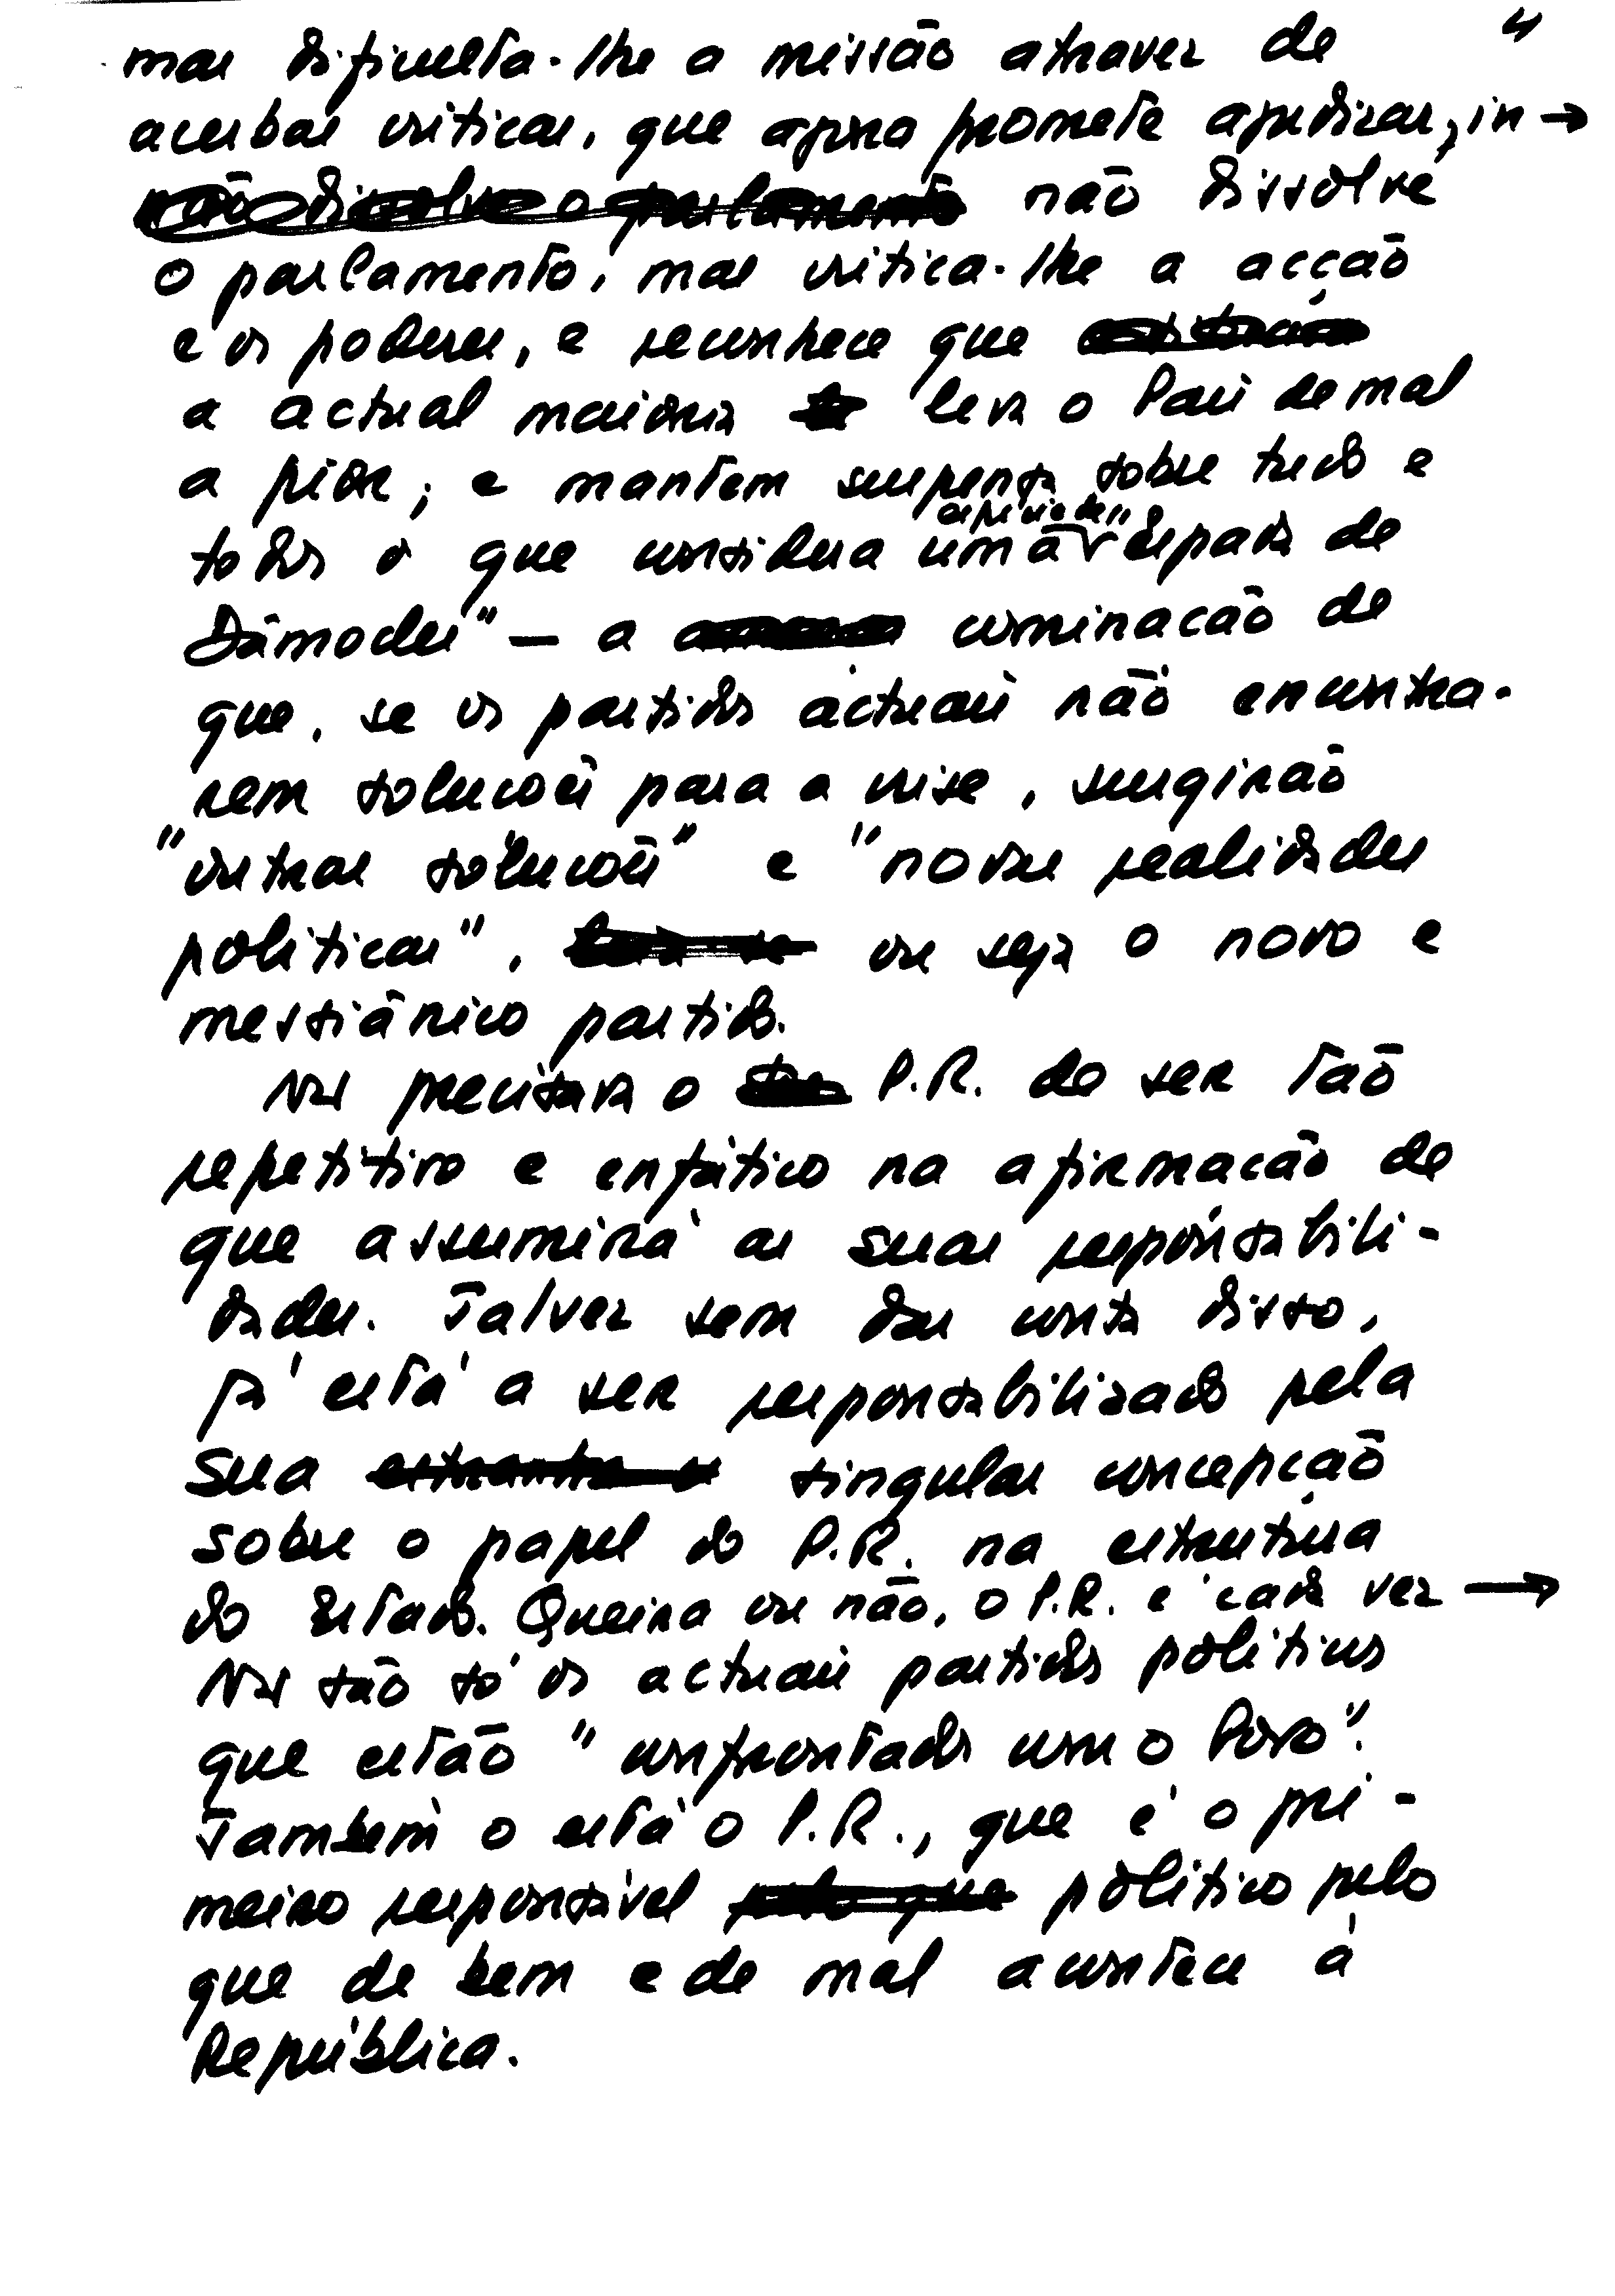 4
mas dificulta-lhe a missão através de
acerbas críticas, que agora promete agudizar, in →
não dissolve o parlamento não dissolve
o parlamento, mas critica-lhe a acção
e os poderes, e reconhece que
a actual maioria leva o País de mal
a pior; e mantem suspensa sobre tudo e
todos o que considera uma espécie de "Espada de
Dâmocles" — a cominação de
que, se os partidos actuais não encontra-
rem soluções para a crise, surgirão
"outras soluções" e "novas realidades
políticas", ou seja o novo e
messiânico partido.
Não precisava o P.R. de ser tão
repetitivo e enfático na afirmação de
que assumirá as suas responsabili-
dades. Talvez sem dar conta disso,
já está a ser responsabilizado pela
sua estranha e singular concepção
sobre o papel do P.R. na estrutura
do Estado. Queira ou não, o P.R. é cada vez →
Não são só os actuais partidos políticos
que estão "confrontados com o Povo".
Também o está o P.R., que é o pri-
meiro responsável pelo que político pelo
que de bem e de mal acontece à
República.